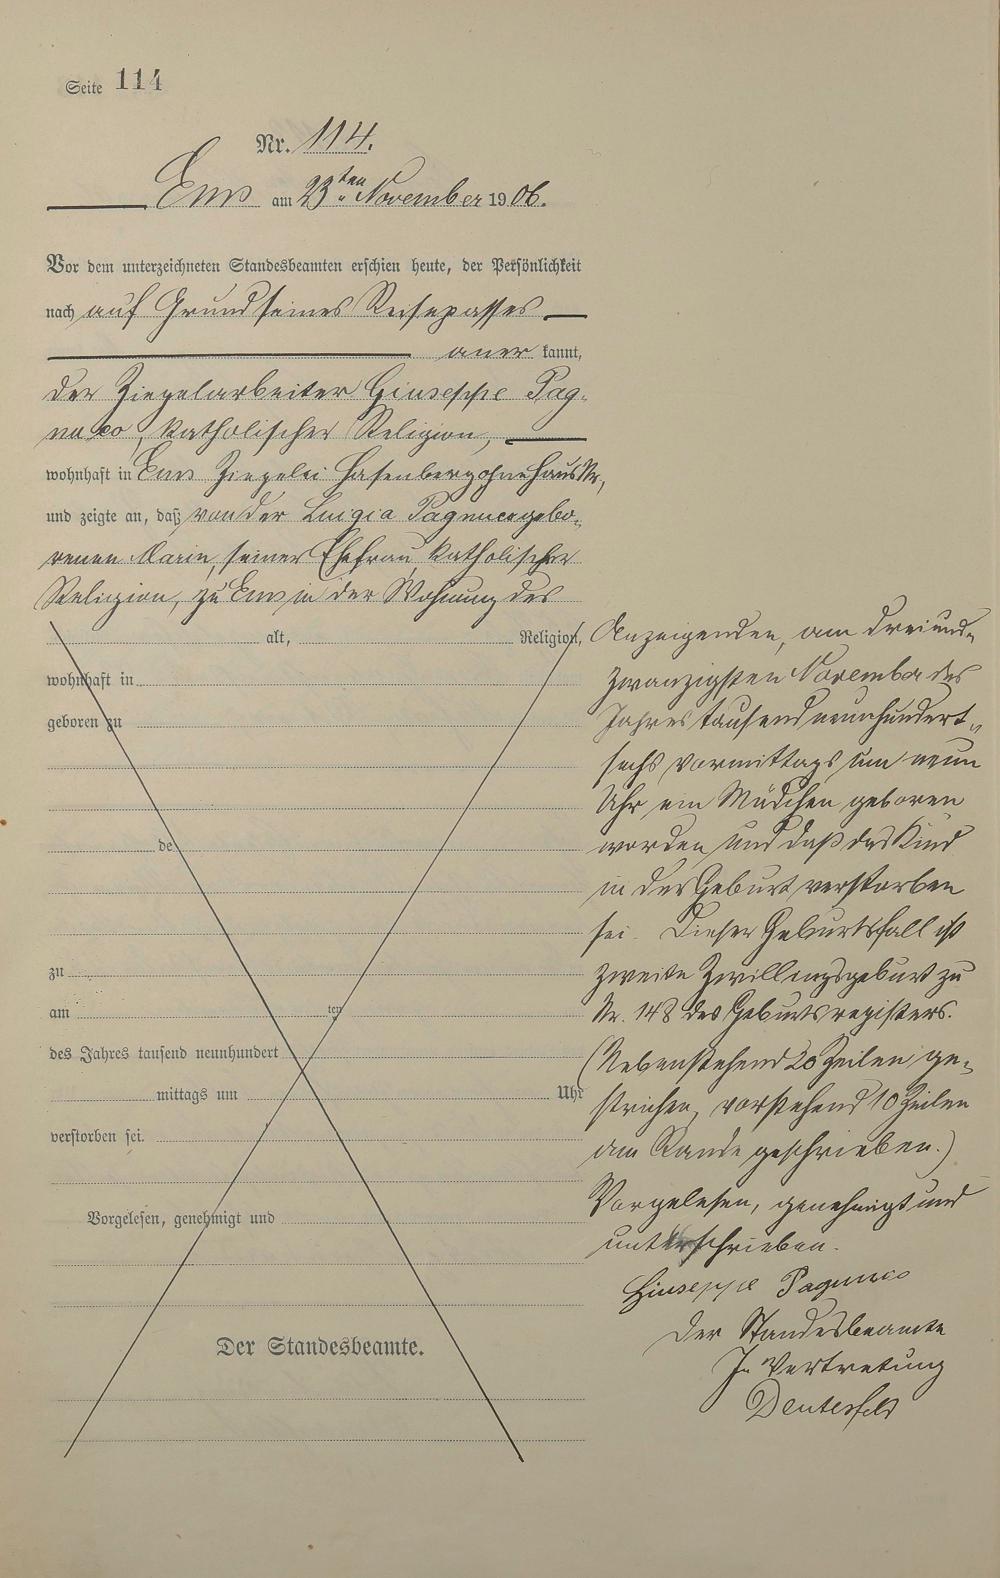 Seite 114
Nr. 114.
Ems am 23ten November 1906.
Vor dem unterzeichneten Standesbeamten erschien heute, der Persönlichkeit
nach auf Grund seines Reisepasses
aner kannt,
der Ziegelarbeiter Giuseppe Pag-
, katholischer Religion,
wohnhaft in Ems Ziegelei Hasenberg ohne Haus Nr,
und zeigte an, daß von der Luigia gebo-
renen Marin, seiner Ehefrau, katholischer
Religion, zu Ems in der Wohnung des
alt, Religion,
wohnhaft in
geboren zu
de
zu
am ten
des Jahres tausend neunhundert
mittags um Uhr
verstorben sei.
Vorgelesen, genehmigt und
Der Standesbeamte.
Anzeigenden, am dreiund-
zwanzigsten November des
Jahres tausend neunhundert-
sechs vormittags um neun
Uhr ein Mädchen geboren
worden und daß das Kind
in der Geburt verstorben
sei. Dieser Geburtsfall ist
zweite Zwillingsgeburt zu
Nr. 148 des Geburtsregisters.
(Nebenstehend 20 Zeilen ge-
strichen, vorstehend 10 Zeilen
am Rande geschrieben.)
Vorgelesen, genehmigt und
unterschrieben.
Giuseppe
Der Standesbeamte
In Vertretung